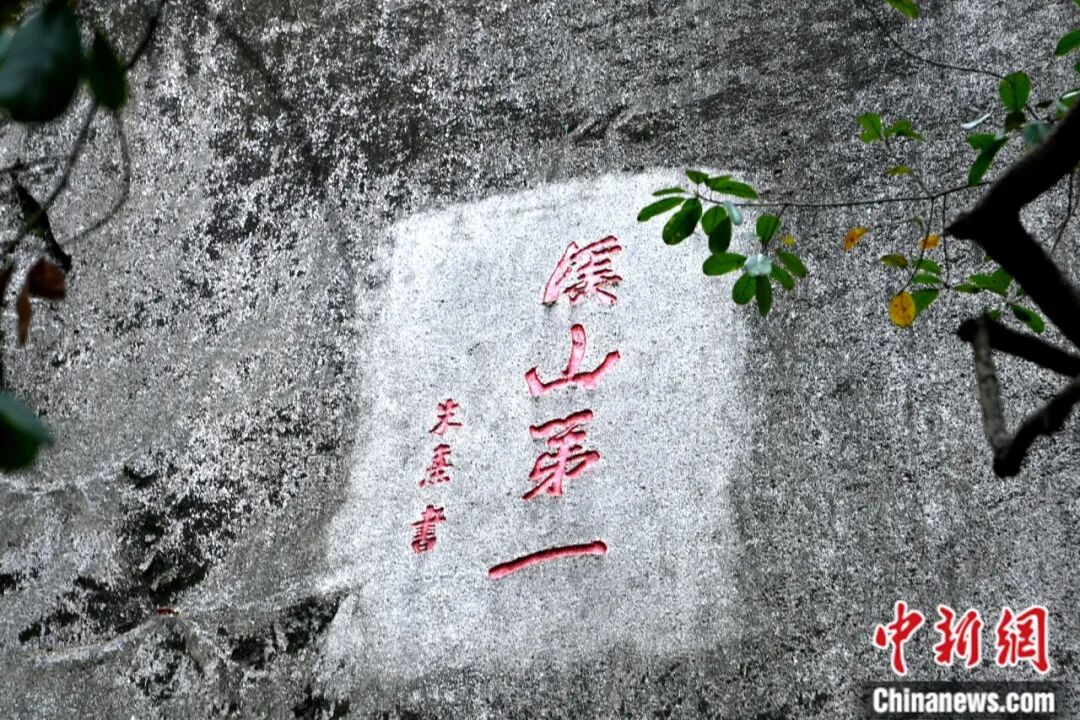 溪山第一
朱熹書
中新網
Chinanews.com